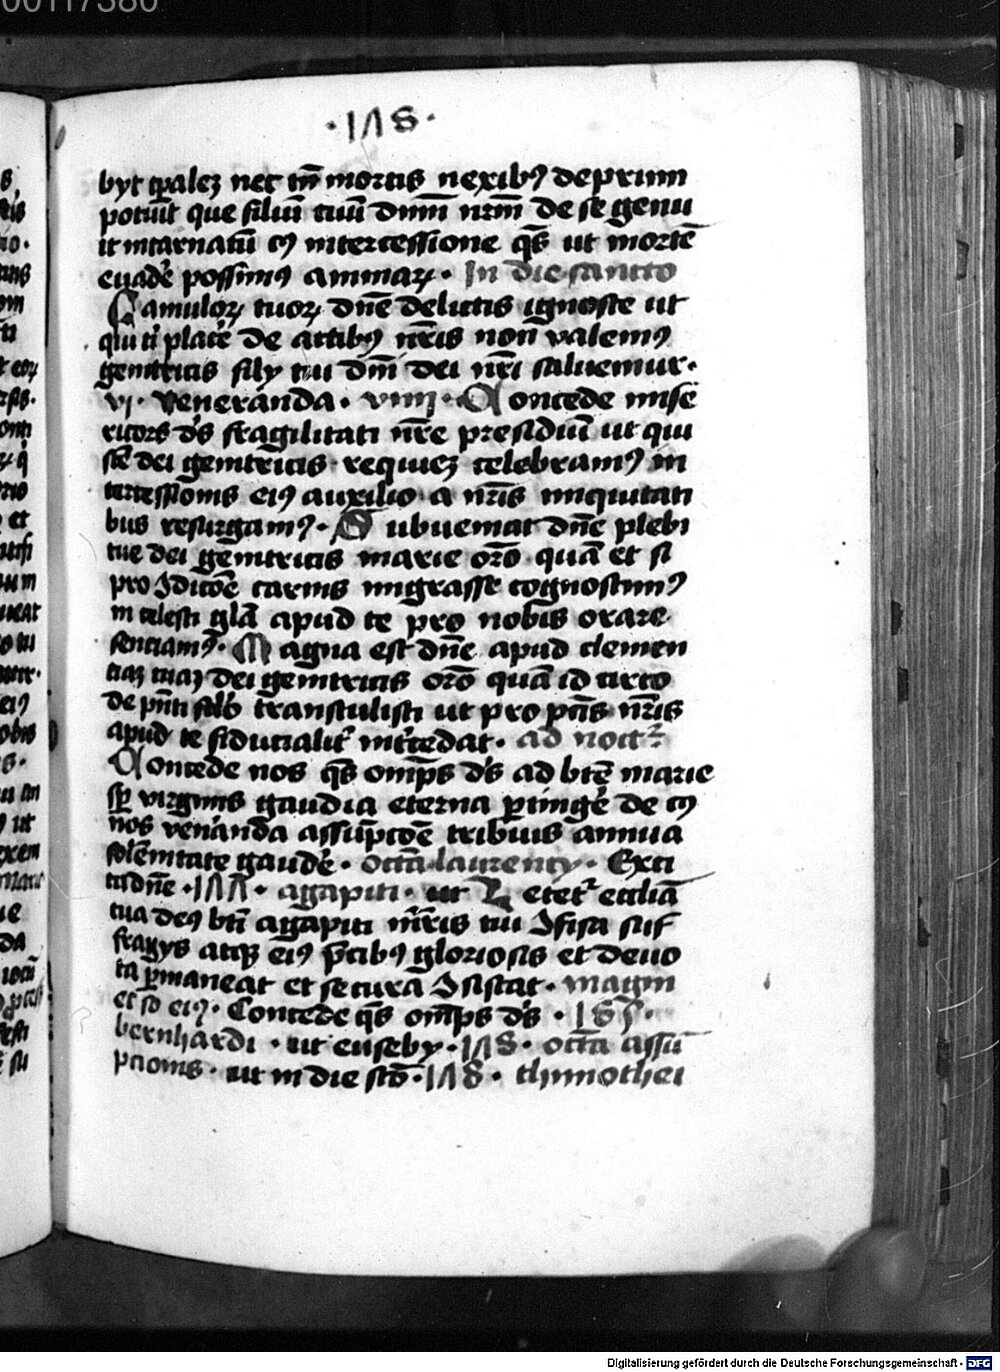 00117380
·1Λ8·
byt tꝑalez nec tn̄ mortis nexibꝰ deprimi
potuit que filiū tuū dnm̄ nrm̄ de se genu
it incarnatū cꝰ intercessione qs̄ ut mortē
euadē possimꝰ animaꝝ · In die sancto
Famuloꝝ tuoꝝ dn̄e delictis ignosce ut
qui ti placē de actibꝰ nr̄is non valemꝰ
genitricis filÿ tui dm̄ dei nr̄i saluemur·
vj· veneranda· viiij· Concede mise
ricors ds̄ fragilitati nr̄e presidiū ut qui
sc̄e dei genitricis requiez celebramꝰ in
tercessionis eiꝰ auxilio a nr̄is iniquitati
bus resurgamꝰ· Subueniat dn̄e plebi
tue dei genitricis marie or̄o quā et si
pro ɔdicōe carnis migrasse cognoscimꝰ
in celesti gl̄a apud te pro nobis orare
senciamꝰ· Magna est dn̄e apud clemen
tiaz tuaz dei genitricis or̄o quā id circo
de pn̄ti sc̄lo transtulisti ut pro pc̄is nr̄is
apud te fiducialit̄ int̄cedat· ad noct̄
Concede nos qs̄ omp̄s ds̄ ad btē marie
sꝑ virginis gaudia eterna ꝑtingē de cꝰ
nos ven̄anda assūpcōe tribuis annua
solēnitate gaudē· octā laurencÿ· Exci
ta dn̄e ·1ΛΛ· agapiti· ut Letet̄ eccliā
tua deꝯ bt̄i agapiti mr̄is tui ɔfisa suf
fragÿs atqꝫ eiꝰ p̄cibꝰ gloriosis et deuo
ta ꝑmaneat et secura ɔsistat· magni
et so eiꝰ· Concede qs̄ omp̄s ds̄ ·16
bernhardi · ut eusebÿ·1Λ8· octā assū
pcionis· ut in die scō·1Λ8· thimothei
Digitalisierung gefördert durch die Deutsche Forschungsgemeinschaft - DFG